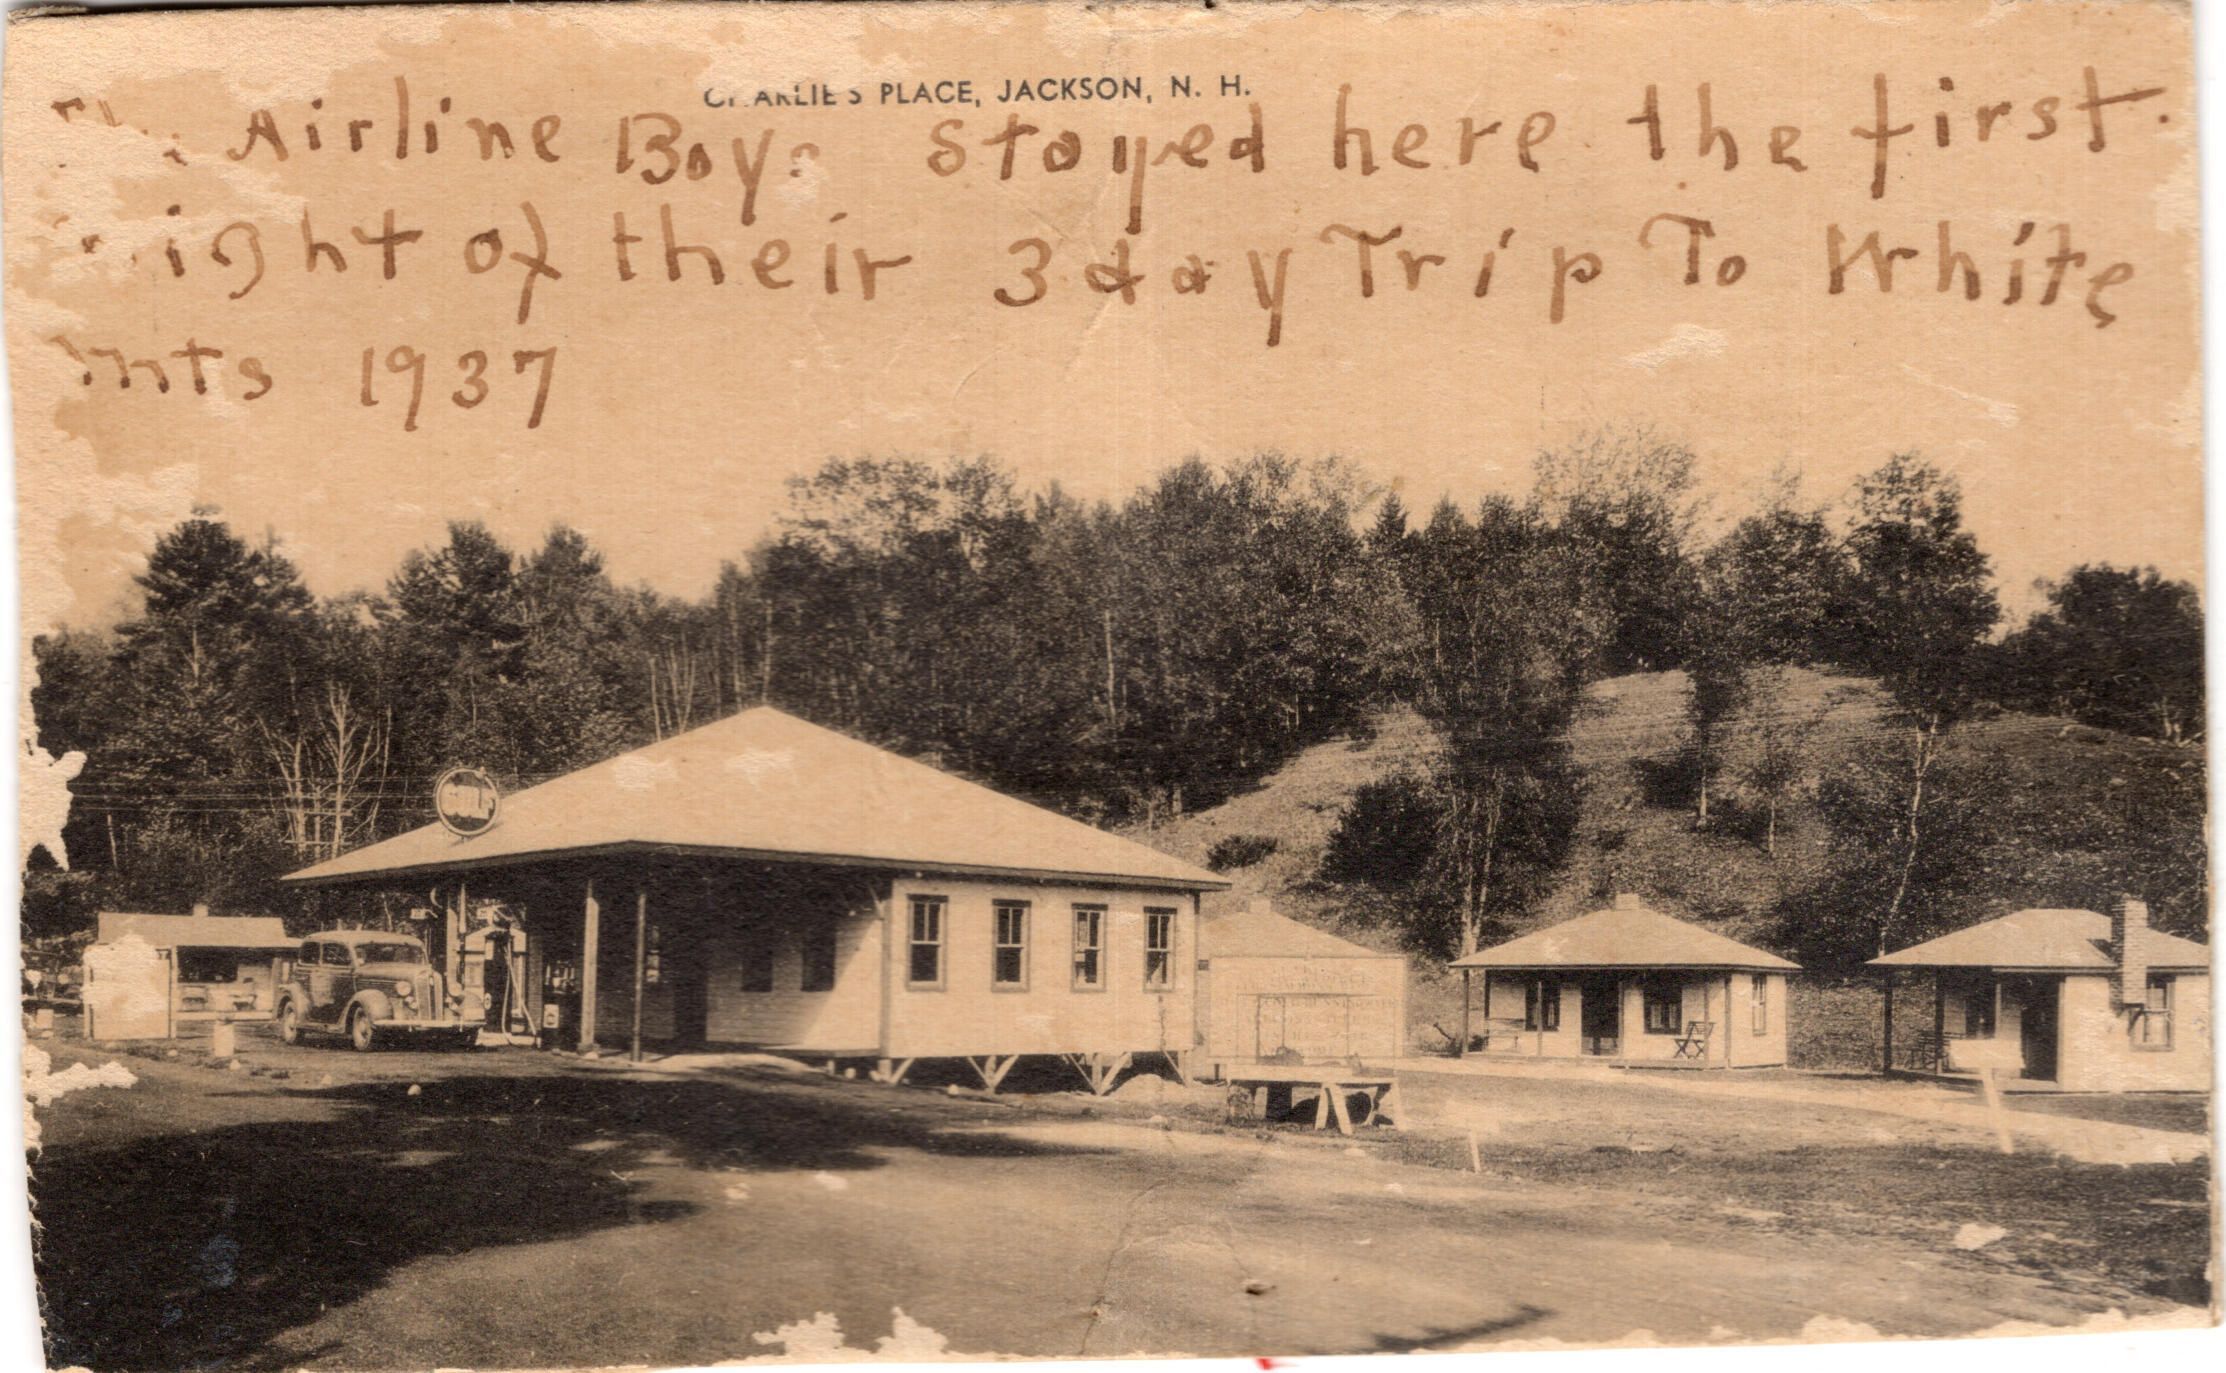 CHARLIE'S PLACE, JACKSON, N. H.
The Airline Boys stayed here the first
night of their 3 day Trip To White
mnts 1937
GULF